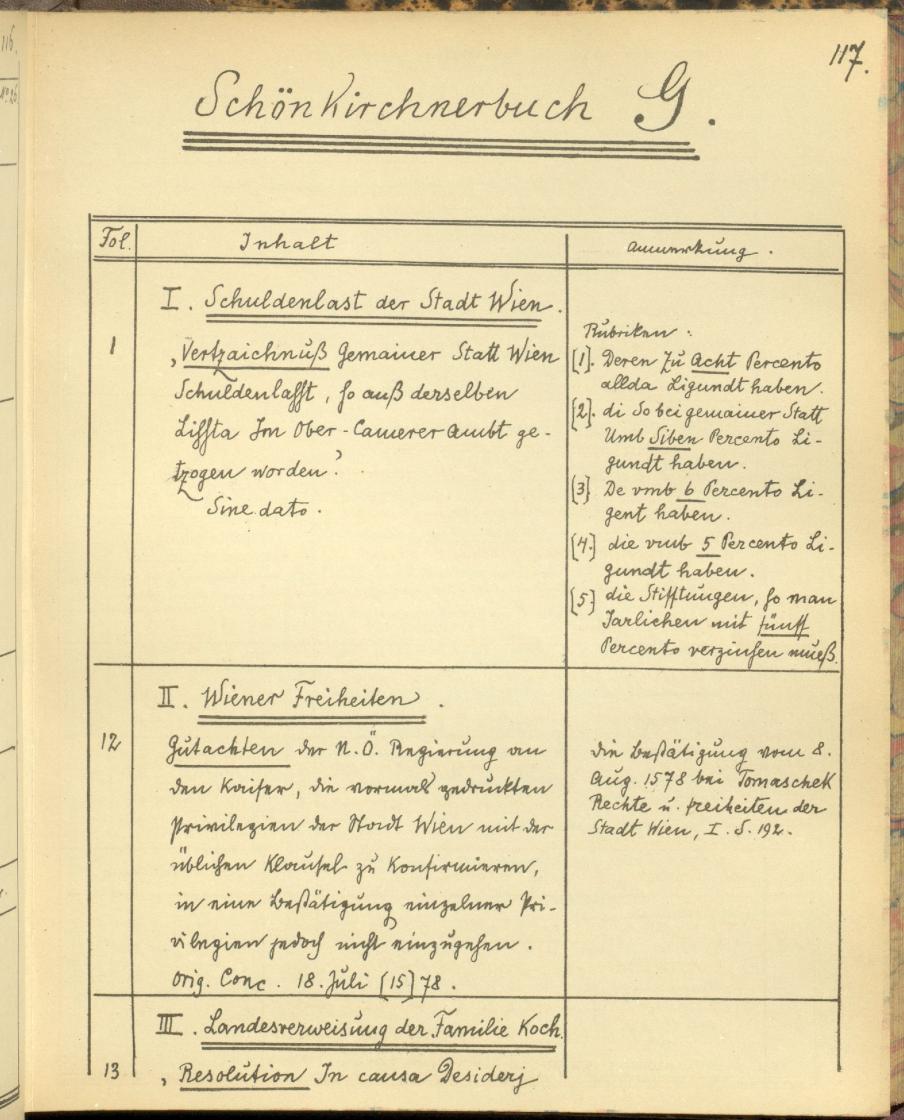 117.
Schönkirchnerbuch G.
Fol.
Inhalt
Anmerkung.
I. Schuldenlast der Stadt Wien.
1
„Vertzaichnuß Gemainer Statt Wien
Schuldenlasst, so auß derselben
Lissta Im Ober-Camerer Ambt ge-
tzogen worden."
Sine dato.
Rubriken:
[1]. Deren Zu Acht Percento
allda Ligundt haben.
[2]. di So bei gemainer Statt
Umb Siben Percento Li-
gundt haben.
[3] De vmb 6 Percento Li-
gent haben.
[4.] die vmb 5 Percento Li-
gundt haben.
[5.] die Stifftungen, so man
Jarlichen mit fünff
Percento verzinsen mueß.
II. Wiener Freiheiten.
12
Gutachten der N.Ö. Regierung an
den Kaiser, die vormals gedruckten
Privilegien der Stadt Wien mit der
üblichen Klausel zu konfirmieren,
in eine Bestätigung einzelner Pri-
vilegien jedoch nicht einzugehen.
Orig. Conc. 18. Juli [15]78.
Die Bestätigung vom 8.
Aug. 1578 bei Tomaschek
Rechte u. Freiheiten der
Stadt Wien, I. S. 192.
III. Landesverweisung der Familie Koch.
13
„Resolution In causa Desiderj